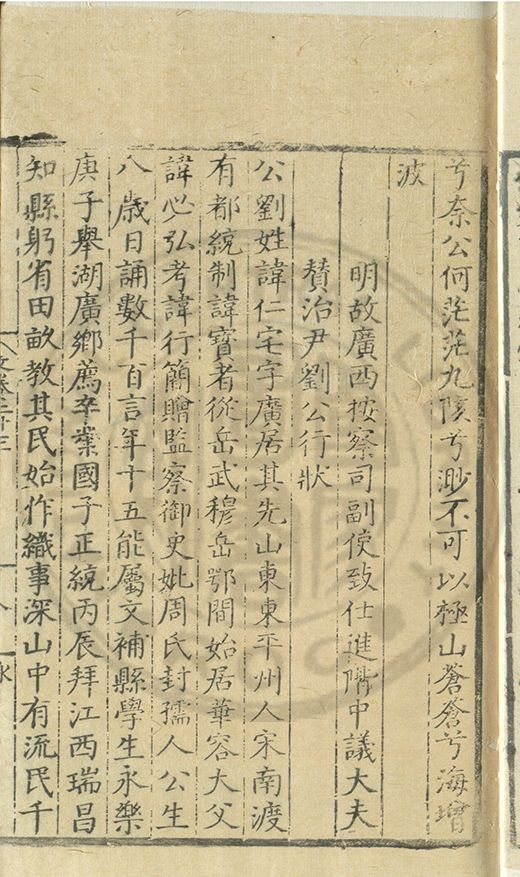 兮奈公何茫茫九陔兮渺不可以極山蒼蒼兮海增
波
明故廣西按察司副使致仕進階中議大夫
贊治尹劉公行狀
公劉姓諱仁宅字廣居其先山東東平州人宋南渡
有都統制諱寳者從岳武穆岳鄂間始居華容大父
諱必弘考諱行簡贈監察御史妣周氏封孺人公生
八歲日誦數千百言年十五能屬文補縣學生永樂
庚子舉湖廣鄉薦卒業國子正統丙辰拜江西瑞昌
知縣躬省田畝教其民始作織事深山中有流民千